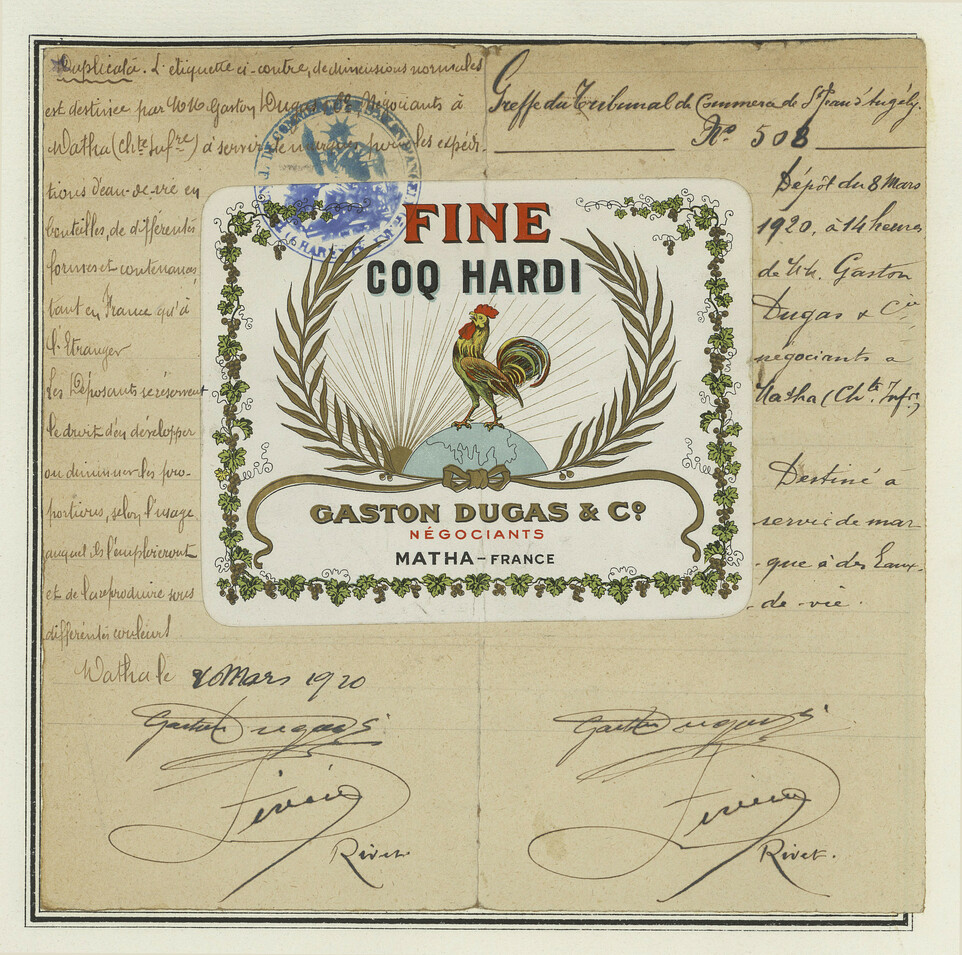 Duplicata. L'étiquette ci-contre, de dimensions normales
est destinée par MM Gaston Dugas & Cie Négociants à
Matha (Chte Infre) à servir de marque pour les expédi-
tions d'eau-de-vie en
bouteilles, de différentes
formes et contenances
tant en France qu'à
l'Etranger
Les Déposants se réservent
le droit d'en développer
ou diminuer les pro-
portions, selon l'usage
auquel ils l'emploieront
et de la reproduire sous
différentes couleurs
Matha le 8 Mars 1920
Gaston Dugas
Rivet
Greffe du Tribunal de Commerce de St Jean d'Angély.
No 508
Dépôt du 8 Mars
1920, à 14 heures
de MM. Gaston
Dugas & Cie
négociants a
Matha (Chte Infre)
Destiné a
servir de mar
que à des Eaux-
de-vie.
Gaston Dugas
Rivet.
FINE
COQ HARDI
GASTON DUGAS & Co
NÉGOCIANTS
MATHA - FRANCE